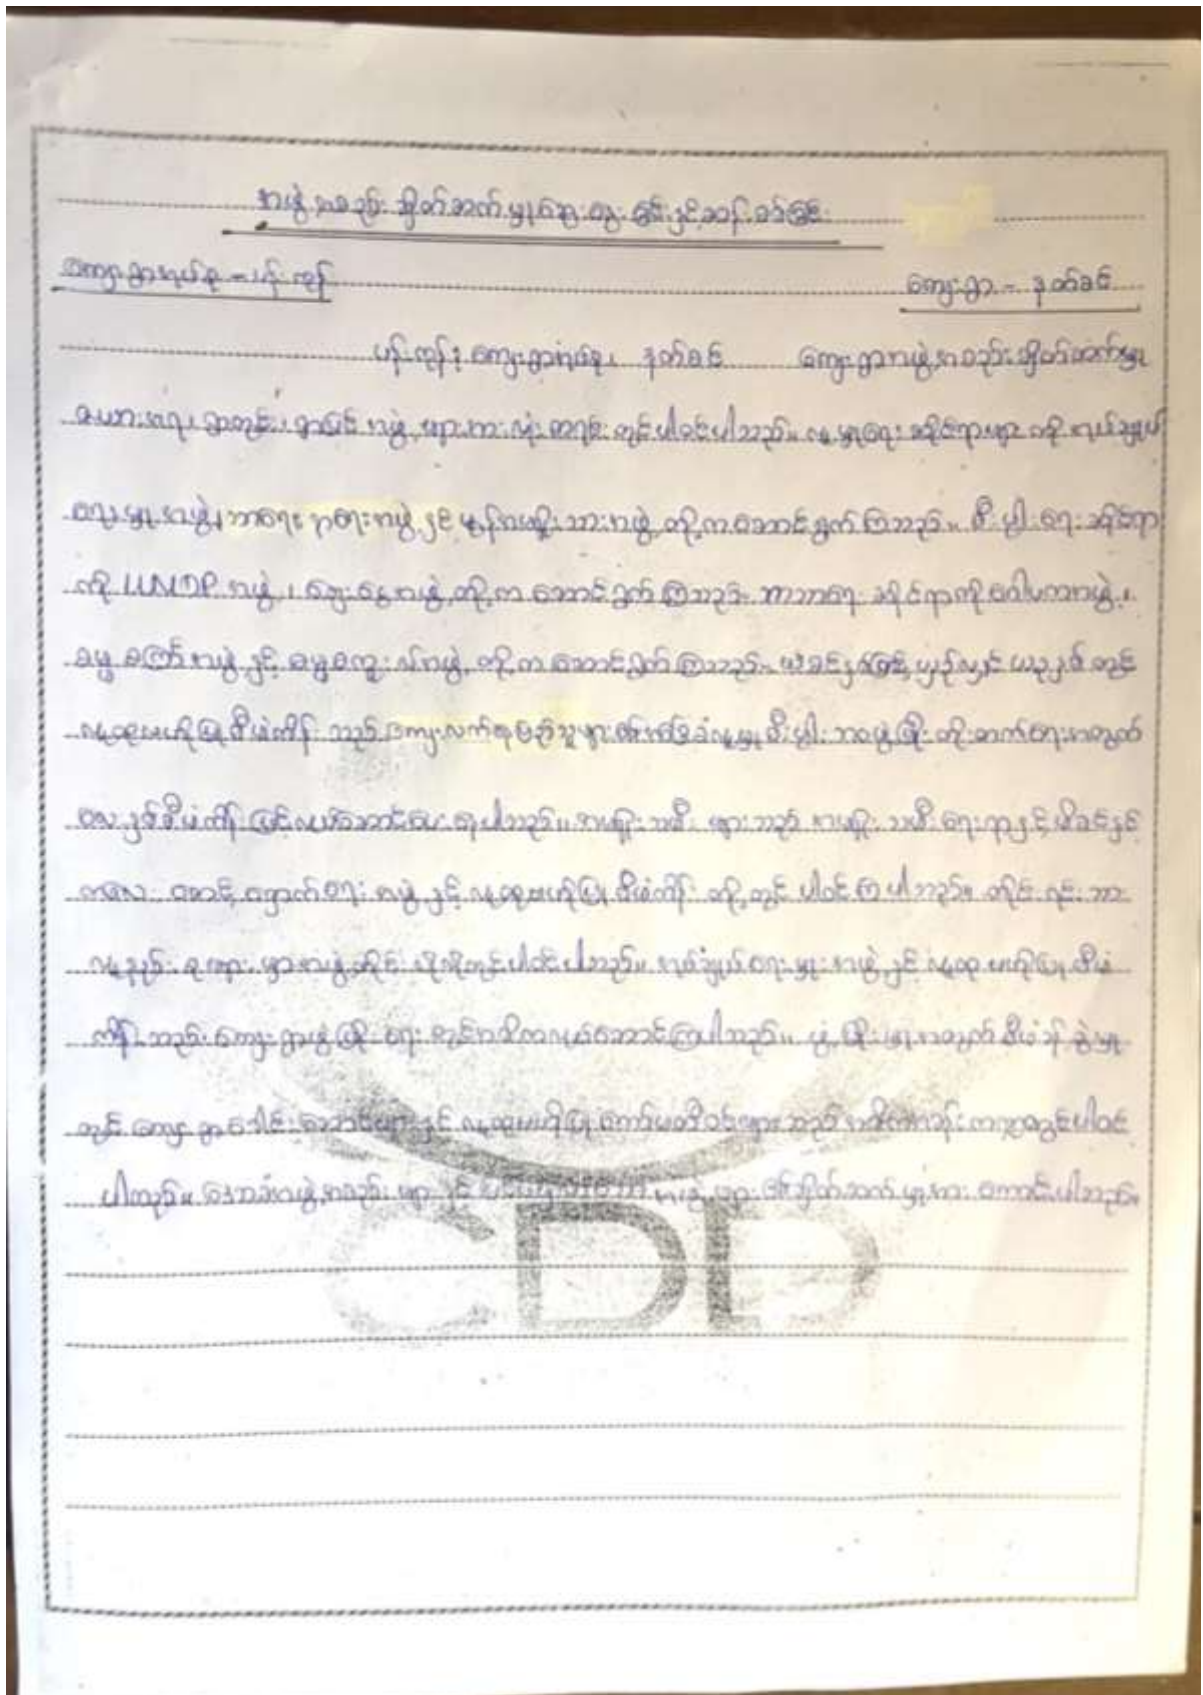 အဖွဲ့အစည်း ချိတ်ဆက်မှုဆွေးနွေးခြင်းနှင့်ဆန်းစစ်ခြင်း
ကျေးရွာအုပ်စု - ပန်းကုန်း ကျေးရွာ - နတ်ခင်
ပန်းကုန်း ကျေးရွာအုပ်စု၊ နတ်ခင် ကျေးရွာအဖွဲ့အစည်းချိတ်ဆက်မှု
ရွာတွင်း၊ ရွာပြင် အဖွဲ့များအားလုံး တွင်ပါဝင်ပါသည်။ လူမှုရေးဆိုင်ရာများကို အုပ်ချုပ်
ရေးမှူးအဖွဲ့၊ သာရေး နာရေးအဖွဲ့နှင့် မွန်အမျိုးသားအဖွဲ့တို့က ဆောင်ရွက်ကြသည်။ စီးပွါးရေးဆိုင်ရာ
ကို UNDP အဖွဲ့၊ ချေးငွေအဖွဲ့တို့က ဆောင်ရွက်ကြသည်။ ဘာသာရေးဆိုင်ရာကို ဂေါပကအဖွဲ့၊
ဓမ္မစကြာအဖွဲ့နှင့် ဓမ္မစကူးလ်အဖွဲ့တို့က ဆောင်ရွက်ကြသည်။ ယခင်နှစ်နှင့်ယှဉ်လျှင် ယခုနှစ်တွင်
လူထုဗဟိုပြုစီမံကိန်းသည် ကျေးလက်နေပြည်သူများ၏ လူမှုစီးပွါးဘဝဖွံ့ဖြိုးတိုးတက်ရေးအတွက်
လေးနှစ်စီမံကိန်းဖြင့်လုပ်ဆောင်ပေးနေပါသည်။ အမျိုးသမီးများသည် အမျိုးသမီးရေးရာနှင့် မိခင်နှင့်
ကလေး စောင့်ရှောက်ရေးအဖွဲ့နှင့် လူထုဗဟိုပြုစီမံကိန်းတို့တွင် ပါဝင်ကြပါသည်။ တိုင်းရင်းသား
လူနည်းစုများမှာအဖွဲ့တိုင်းလိုလိုတွင်ပါဝင်ပါသည်။ အုပ်ချုပ်ရေးမှူးအဖွဲ့နှင့် လူထုဗဟိုပြုစီမံ
ကိန်းသည် ကျေးရွာဖွံ့ဖြိုးရေးတွင်အဓိကလုပ်ဆောင်ကြပါသည်။ ဖွံ့ဖြိုးမှုအတွက်စီမံခန့်ခွဲမှု
တွင် ကျေးရွာခေါင်းဆောင်များနှင့် လူထုဗဟိုပြုကော်မတီဝင်များသည် အဓိကအခန်းကဏ္ဍတွင်ပါဝင်
ပါသည်။ ဒေသခံအဖွဲ့အစည်းများနှင့် အဖွဲ့များ၏ချိတ်ဆက်မှုအား ကောင်းပါသည်။
CDD